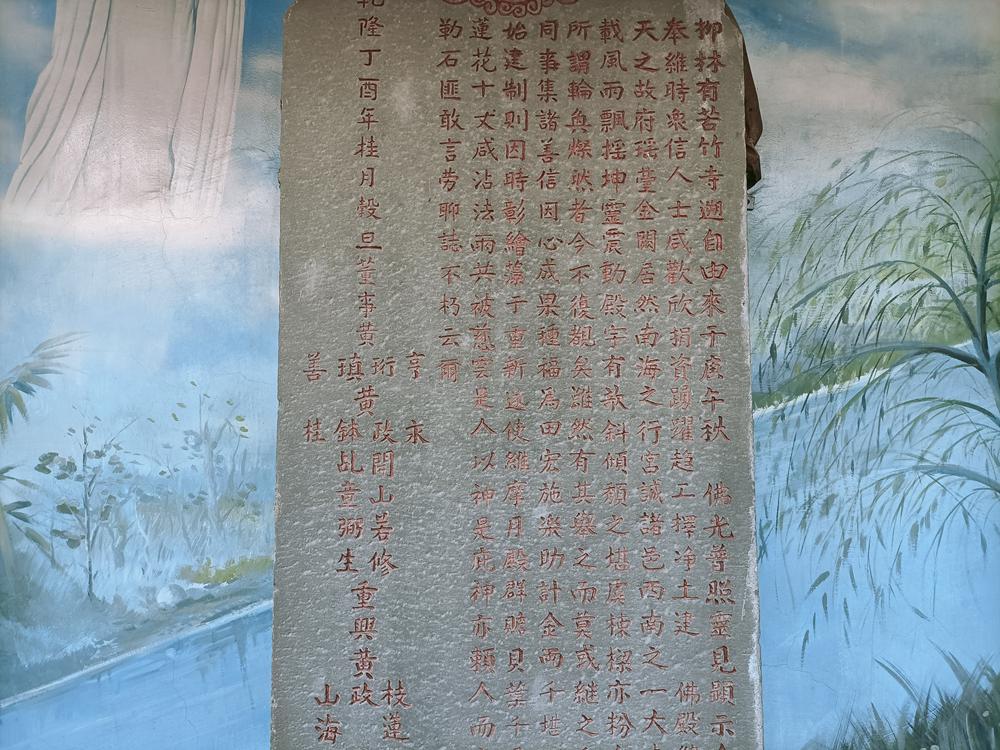 柳林有苦竹寺遡自由來于庚午秋 佛光普照靈見顯示
奉維時衆信人士咸歡欣捐資踴躍趋工擇净土建 佛殿
天之故府瑶臺金闕居然南海之行宮誠諸邑西南之一大
載風雨飄摇坤靈震動殿宇有欹斜傾頽之堪虞棟楔亦粉
所謂輪奐燦然者今不復覩矣雖然有其舉之而莫或継之
同事集諸善信因心成果種福為田宏施樂助計金両千
始建制則因時彰繪藻于重新遂使維摩丹殿群瞻貝葉千
蓮花十丈咸沾法雨共被慈雲是人以神是庇神亦賴人而
勒石匪敢言劳聊誌不朽云爾
乾隆丁酉年桂月穀旦董事黄
亨珩瑱善
黄
永政鉢桂
開山若修
乩童弼生
重興黄政
枝蓮
山海